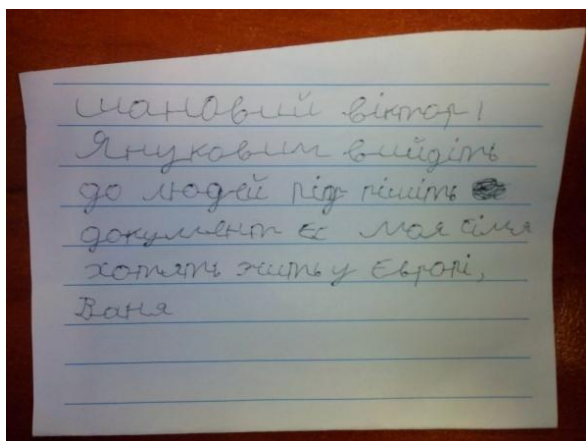 шановий віктор!
Януковим вийдіть
до людей під пішіть
документ єс моя сімя
хотять жить у Європі,
Ваня